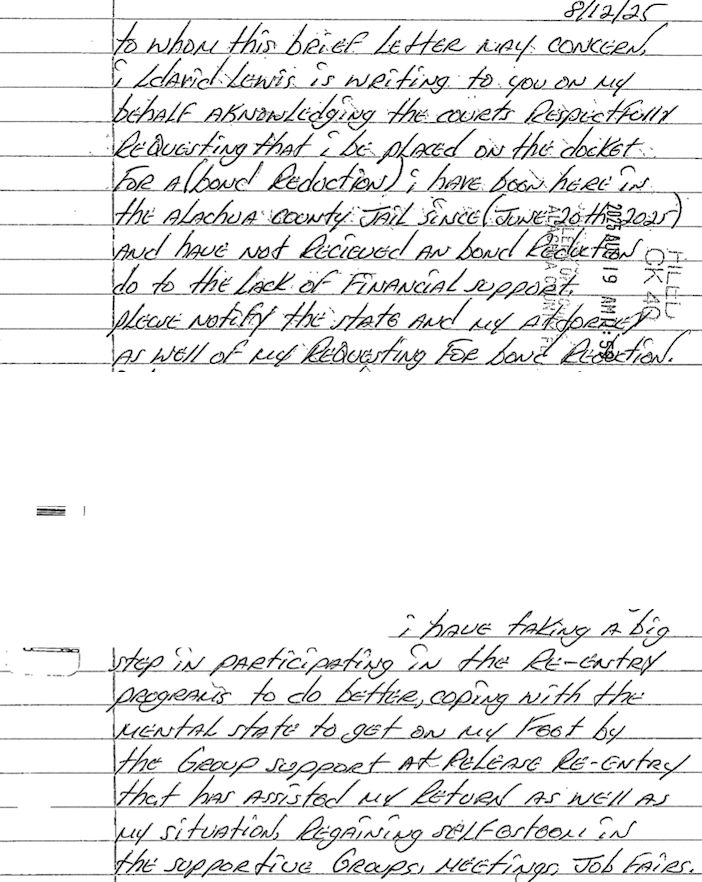 8/12/25
to whom this brief Letter may concern,
i Ldarid Lewis is writing to you on my
behalf aknowledging the courts Respectfully
Requesting that i be placed on the docket
for a (bond Reduction) i have been here in
the Alachua county Jail since (June 20th 2025)
and have not Recieved an bond Reduction
do to the Lack of Financial support.
please notify the state and my attorney
as well of my Requesting for bond Reduction.
FILED
CK 49
2025 AUG 19 AM
i have taking a big
step in participating in the Re-entry
programs to do better, coping with the
mental state to get on my Feet by
the Group support at Release Re-entry
that has assisted my Return as well as
my situation, Regaining self esteem in
the supportive Groups, meetings, Job Fairs.